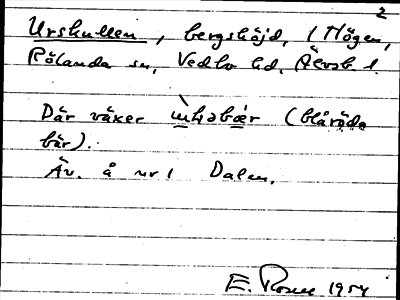 2
Urskullen, bergshöjd, 1 Högen,
Rölanda sn, Vedbo hd, Älvsb. l.
Där växer (blåröda
bär).
Äv. å nr 1 Dalen.
E. Rosell 1954